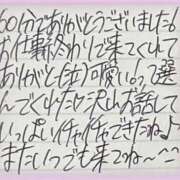 60分でありがとうございました!
お仕事終わりで来てくれて
ありがと(泣)可愛いって選
んでくれたし沢山お話して
いっぱいイチャイチャできたね♪
またいつでも来てね〜^^